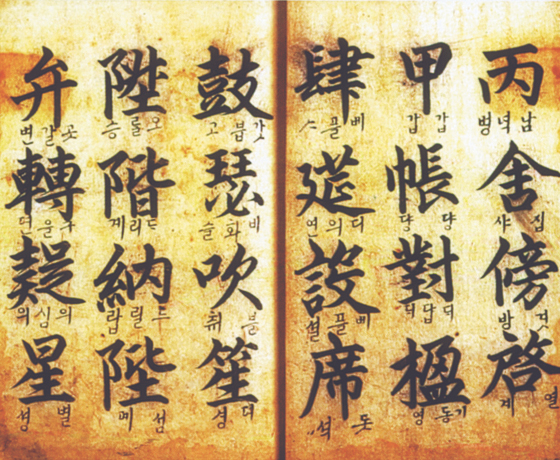 丙 남녁 병
舍 집 샤
傍 겻 방
啓 열 계
甲 갑 갑
帳 댱 댱
對 답
楹 기동 영
肆 베플 ᄉ
筵 디의 연
設 베플 셜
席 돗 셕
鼓 갓붑 고
瑟 비화 슬
吹 불 취
笙 뎌 셩
陞 오를 승
階 드리 계
納 드릴 랍
陛 섬 폐
弁 곳갈 변
轉 구울 뎐
疑 의심 의
星 별 셩